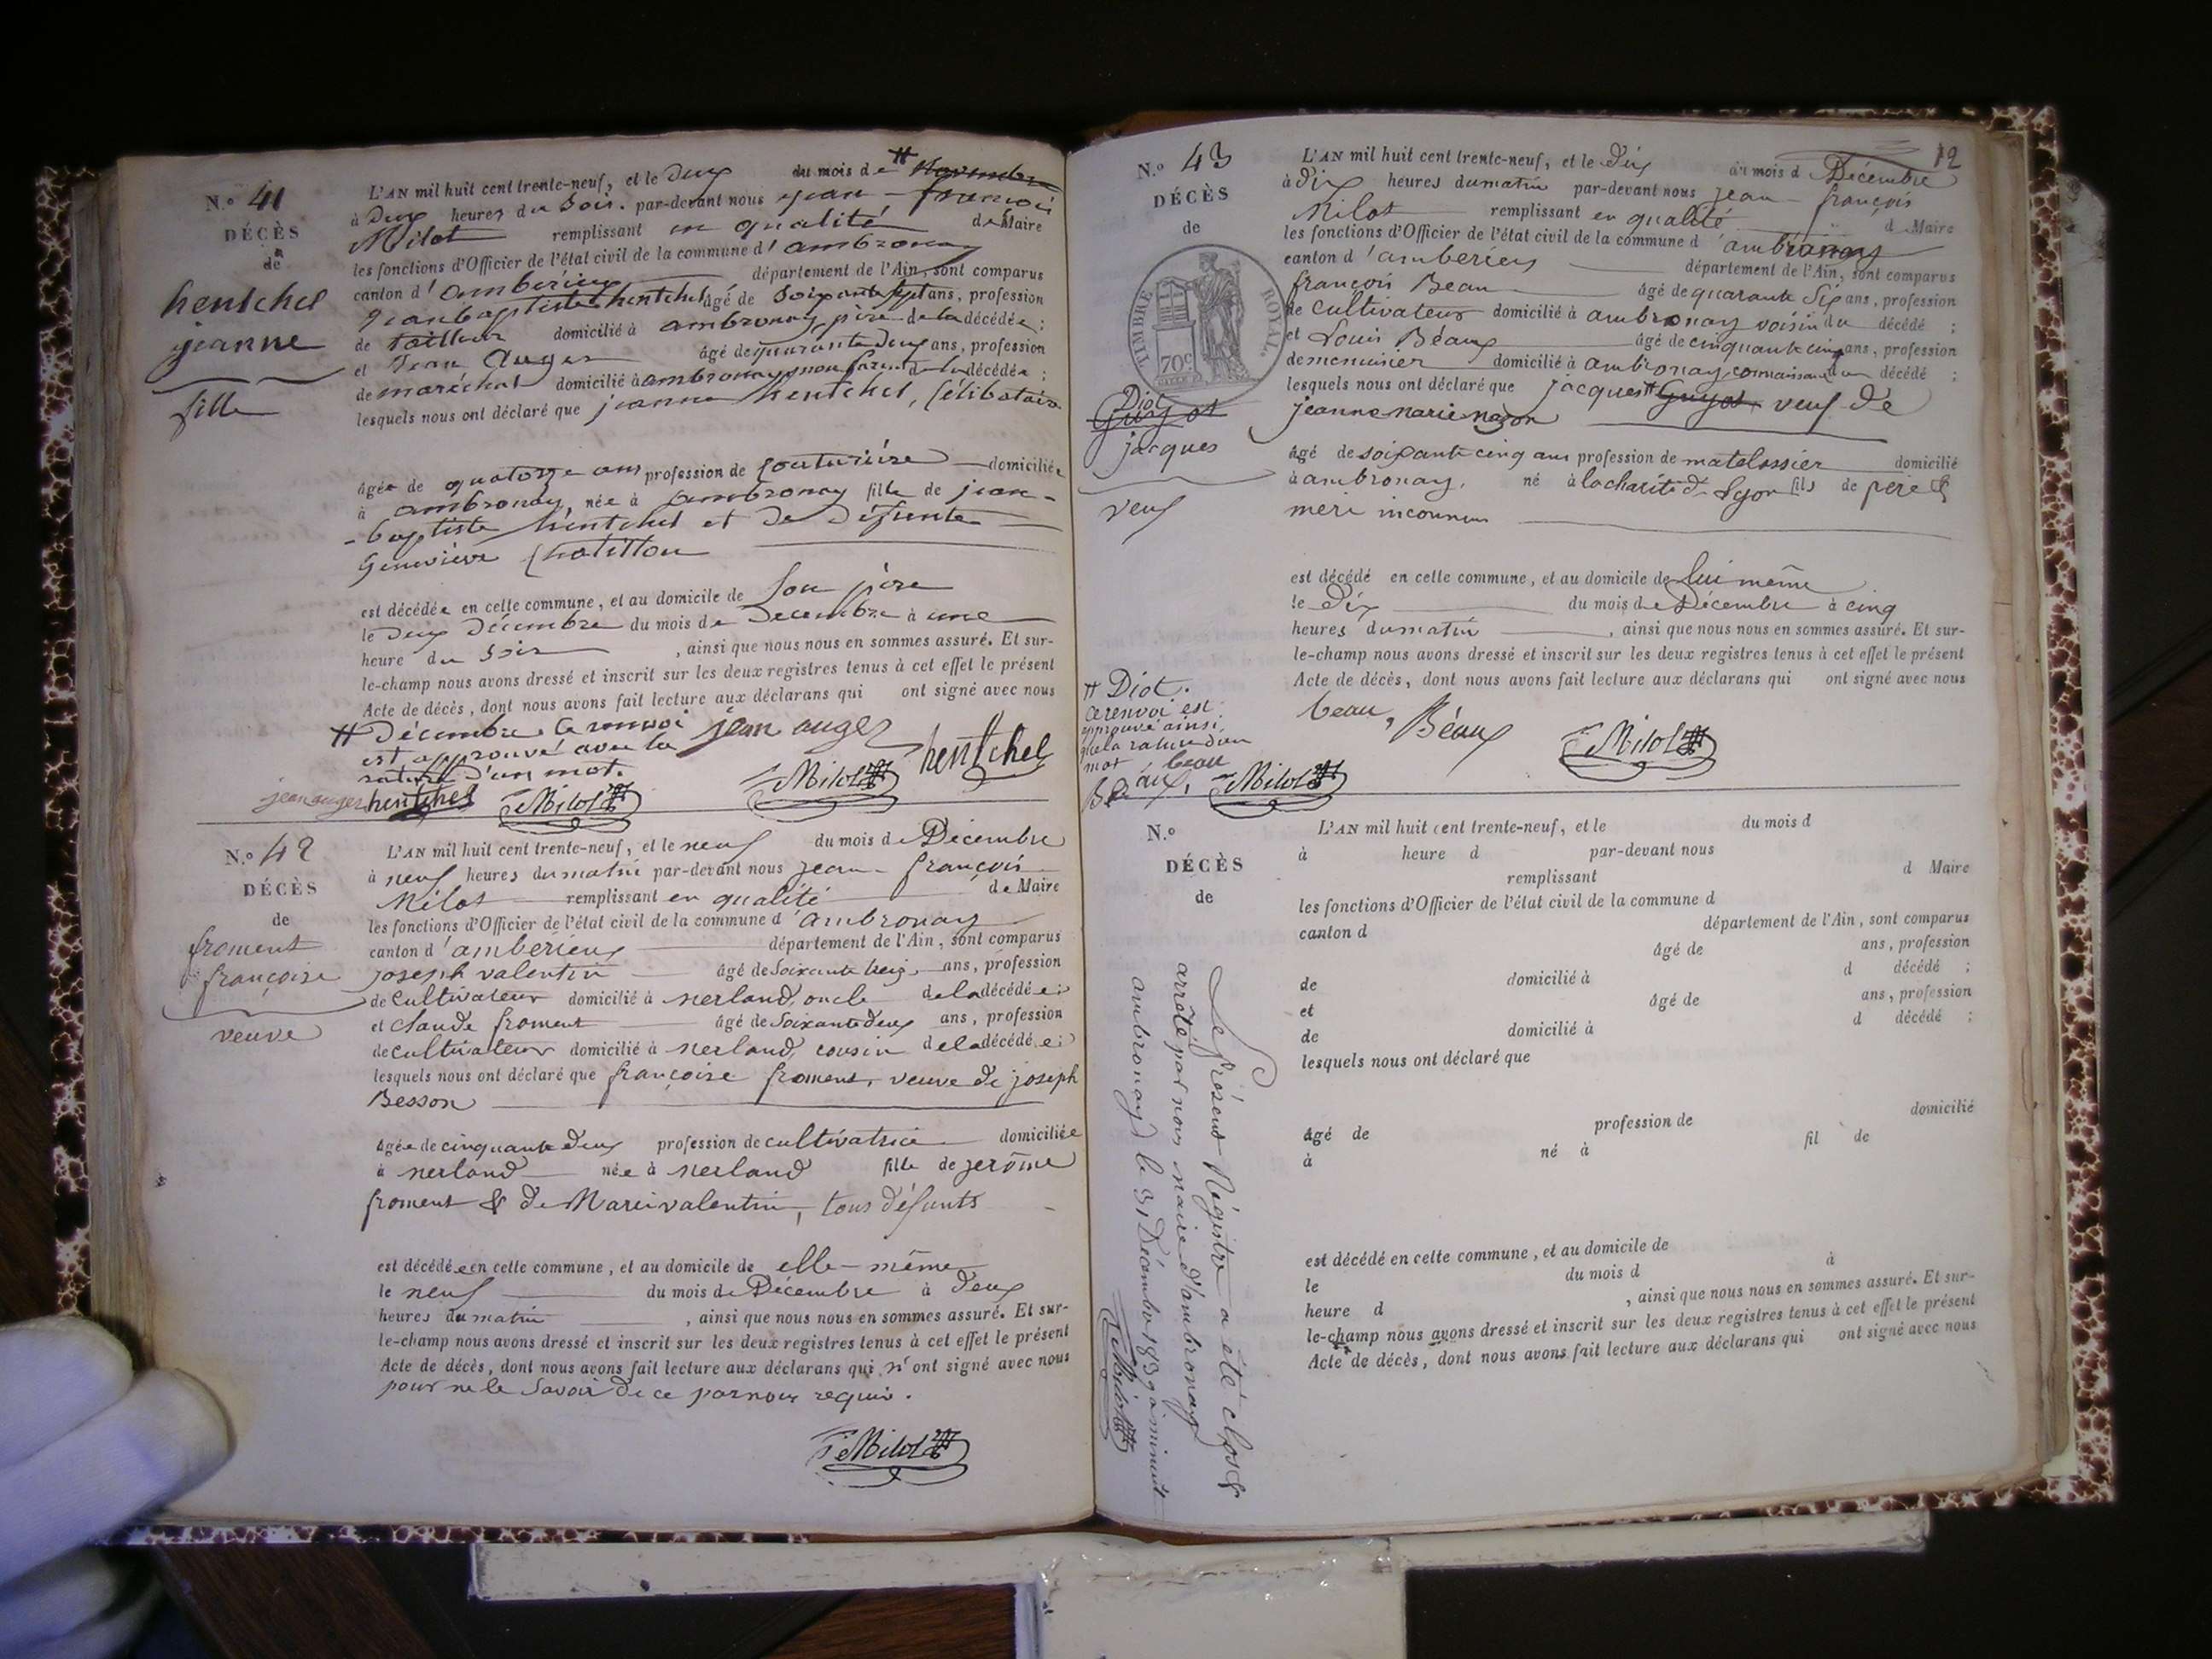 N.o 41
DÉCÈS
de
hentchel
jeanne
fille
L'AN mil huit cent trente-neuf, et le deux du mois de # Novembre
à deux heures du soir. par-devant nous jean-françois
Milot remplissant en qualité de Maire
les fonctions d'Officier de l'état civil de la commune d'ambronay
canton d'ambérieux département de l'Ain, sont comparus
jean baptiste hentchel âgé de soixante sept ans, profession
de tailleur domicilié à ambronay, père de la décédée;
et Jean Auger âgé de quarante deux ans, profession
de maréchal domicilié à ambronay, non parent de la décédée;
lesquels nous ont déclaré que jeanne hentchel, Célibataire
âgée de quatorze ans profession de couturière domiciliée
à ambronay, née à ambronay fille de jean-
-baptiste hentchel et de défunte
Geneviève Chatillon
est décédée en cette commune, et au domicile de son père
le deux décembre du mois de Decembre à une
heure du soir, ainsi que nous nous en sommes assuré. Et sur-
le-champ nous avons dressé et inscrit sur les deux registres tenus à cet effet le présent
Acte de décès, dont nous avons fait lecture aux déclarans qui ont signé avec nous
# Décembre. Ce renvoi jean auger
est approuvé avec la hentchel
rature d'un mot. Milot
jean auger hentchel Milot
N.o 42
DÉCÈS
de
froment
françoise
veuve
L'AN mil huit cent trente-neuf, et le neuf du mois de Décembre
à neuf heures du matin par-devant nous jean-françois
Milot remplissant en qualité de Maire
les fonctions d'Officier de l'état civil de la commune d'ambronay
canton d'ambérieux département de l'Ain, sont comparus
joseph valentin âgé de soixante treize ans, profession
de cultivateur domicilié à merland, oncle de la décédée;
et claude froment âgé de soixante deux ans, profession
de cultivateur domicilié à merland, cousin de la décédée;
lesquels nous ont déclaré que françoise froment, veuve de joseph
Besson
âgée de cinquante deux profession de cultivatrice domiciliée
à merland née à merland fille de jerôme
froment & de Marie valentin, tous défunts
est décédée en cette commune, et au domicile de elle-même
le neuf du mois de Décembre à deux
heures du matin, ainsi que nous nous en sommes assuré. Et sur-
le-champ nous avons dressé et inscrit sur les deux registres tenus à cet effet le présent
Acte de décès, dont nous avons fait lecture aux déclarans qui n'ont signé avec nous
pour ne le savoir de ce par nous requis.
Milot
12
N.o 43
DÉCÈS
de
TIMBRE ROYAL.
70c
Diot
Guyot
jacques
veuf
L'AN mil huit cent trente-neuf, et le dix du mois d Décembre
à dix heures du matin par-devant nous jean-françois
Milot remplissant en qualité d Maire
les fonctions d'Officier de l'état civil de la commune d'ambronay
canton d'ambérieux département de l'Ain, sont comparus
françois Beau âgé de quarante six ans, profession
de cultivateur domicilié à ambronay voisin du décédé;
et Louis Béaux âgé de cinquante cinq ans, profession
de menuisier domicilié à ambronay, connaissance du décédé;
lesquels nous ont déclaré que jacques # Guyot, veuf de
jeanne marie mazon
âgé de soixante cinq ans profession de matelassier domicilié
à ambronay, né à la charité de Lyon fils de père &
mère inconnus
est décédé en cette commune, et au domicile de lui même
le dix du mois de Décembre à cinq
heures du matin, ainsi que nous nous en sommes assuré. Et sur-
le-champ nous avons dressé et inscrit sur les deux registres tenus à cet effet le présent
Acte de décès, dont nous avons fait lecture aux déclarans qui ont signé avec nous
beau, Béaux Milot
# Diot.
ce renvoi est
approuvé ainsi
que la rature d'un
mot beau
Béaux, Milot
N.o
DÉCÈS
de
L'AN mil huit cent trente-neuf, et le du mois d
à heure d par-devant nous
remplissant d Maire
les fonctions d'Officier de l'état civil de la commune d
canton d département de l'Ain, sont comparus
âgé de ans, profession
de domicilié à d décédé;
et âgé de ans, profession
de domicilié à d décédé;
lesquels nous ont déclaré que
âgé de profession de domicilié
à né à fil de
est décédé en cette commune, et au domicile de
le du mois d à
heure d, ainsi que nous nous en sommes assuré. Et sur-
le-champ nous avons dressé et inscrit sur les deux registres tenus à cet effet le présent
Acte de décès, dont nous avons fait lecture aux déclarans qui ont signé avec nous
Le présent Régistre a été clos &
arrêté par nous maire d'ambronay
ambronay le 31 Décembre 1839 à minuit
Milot